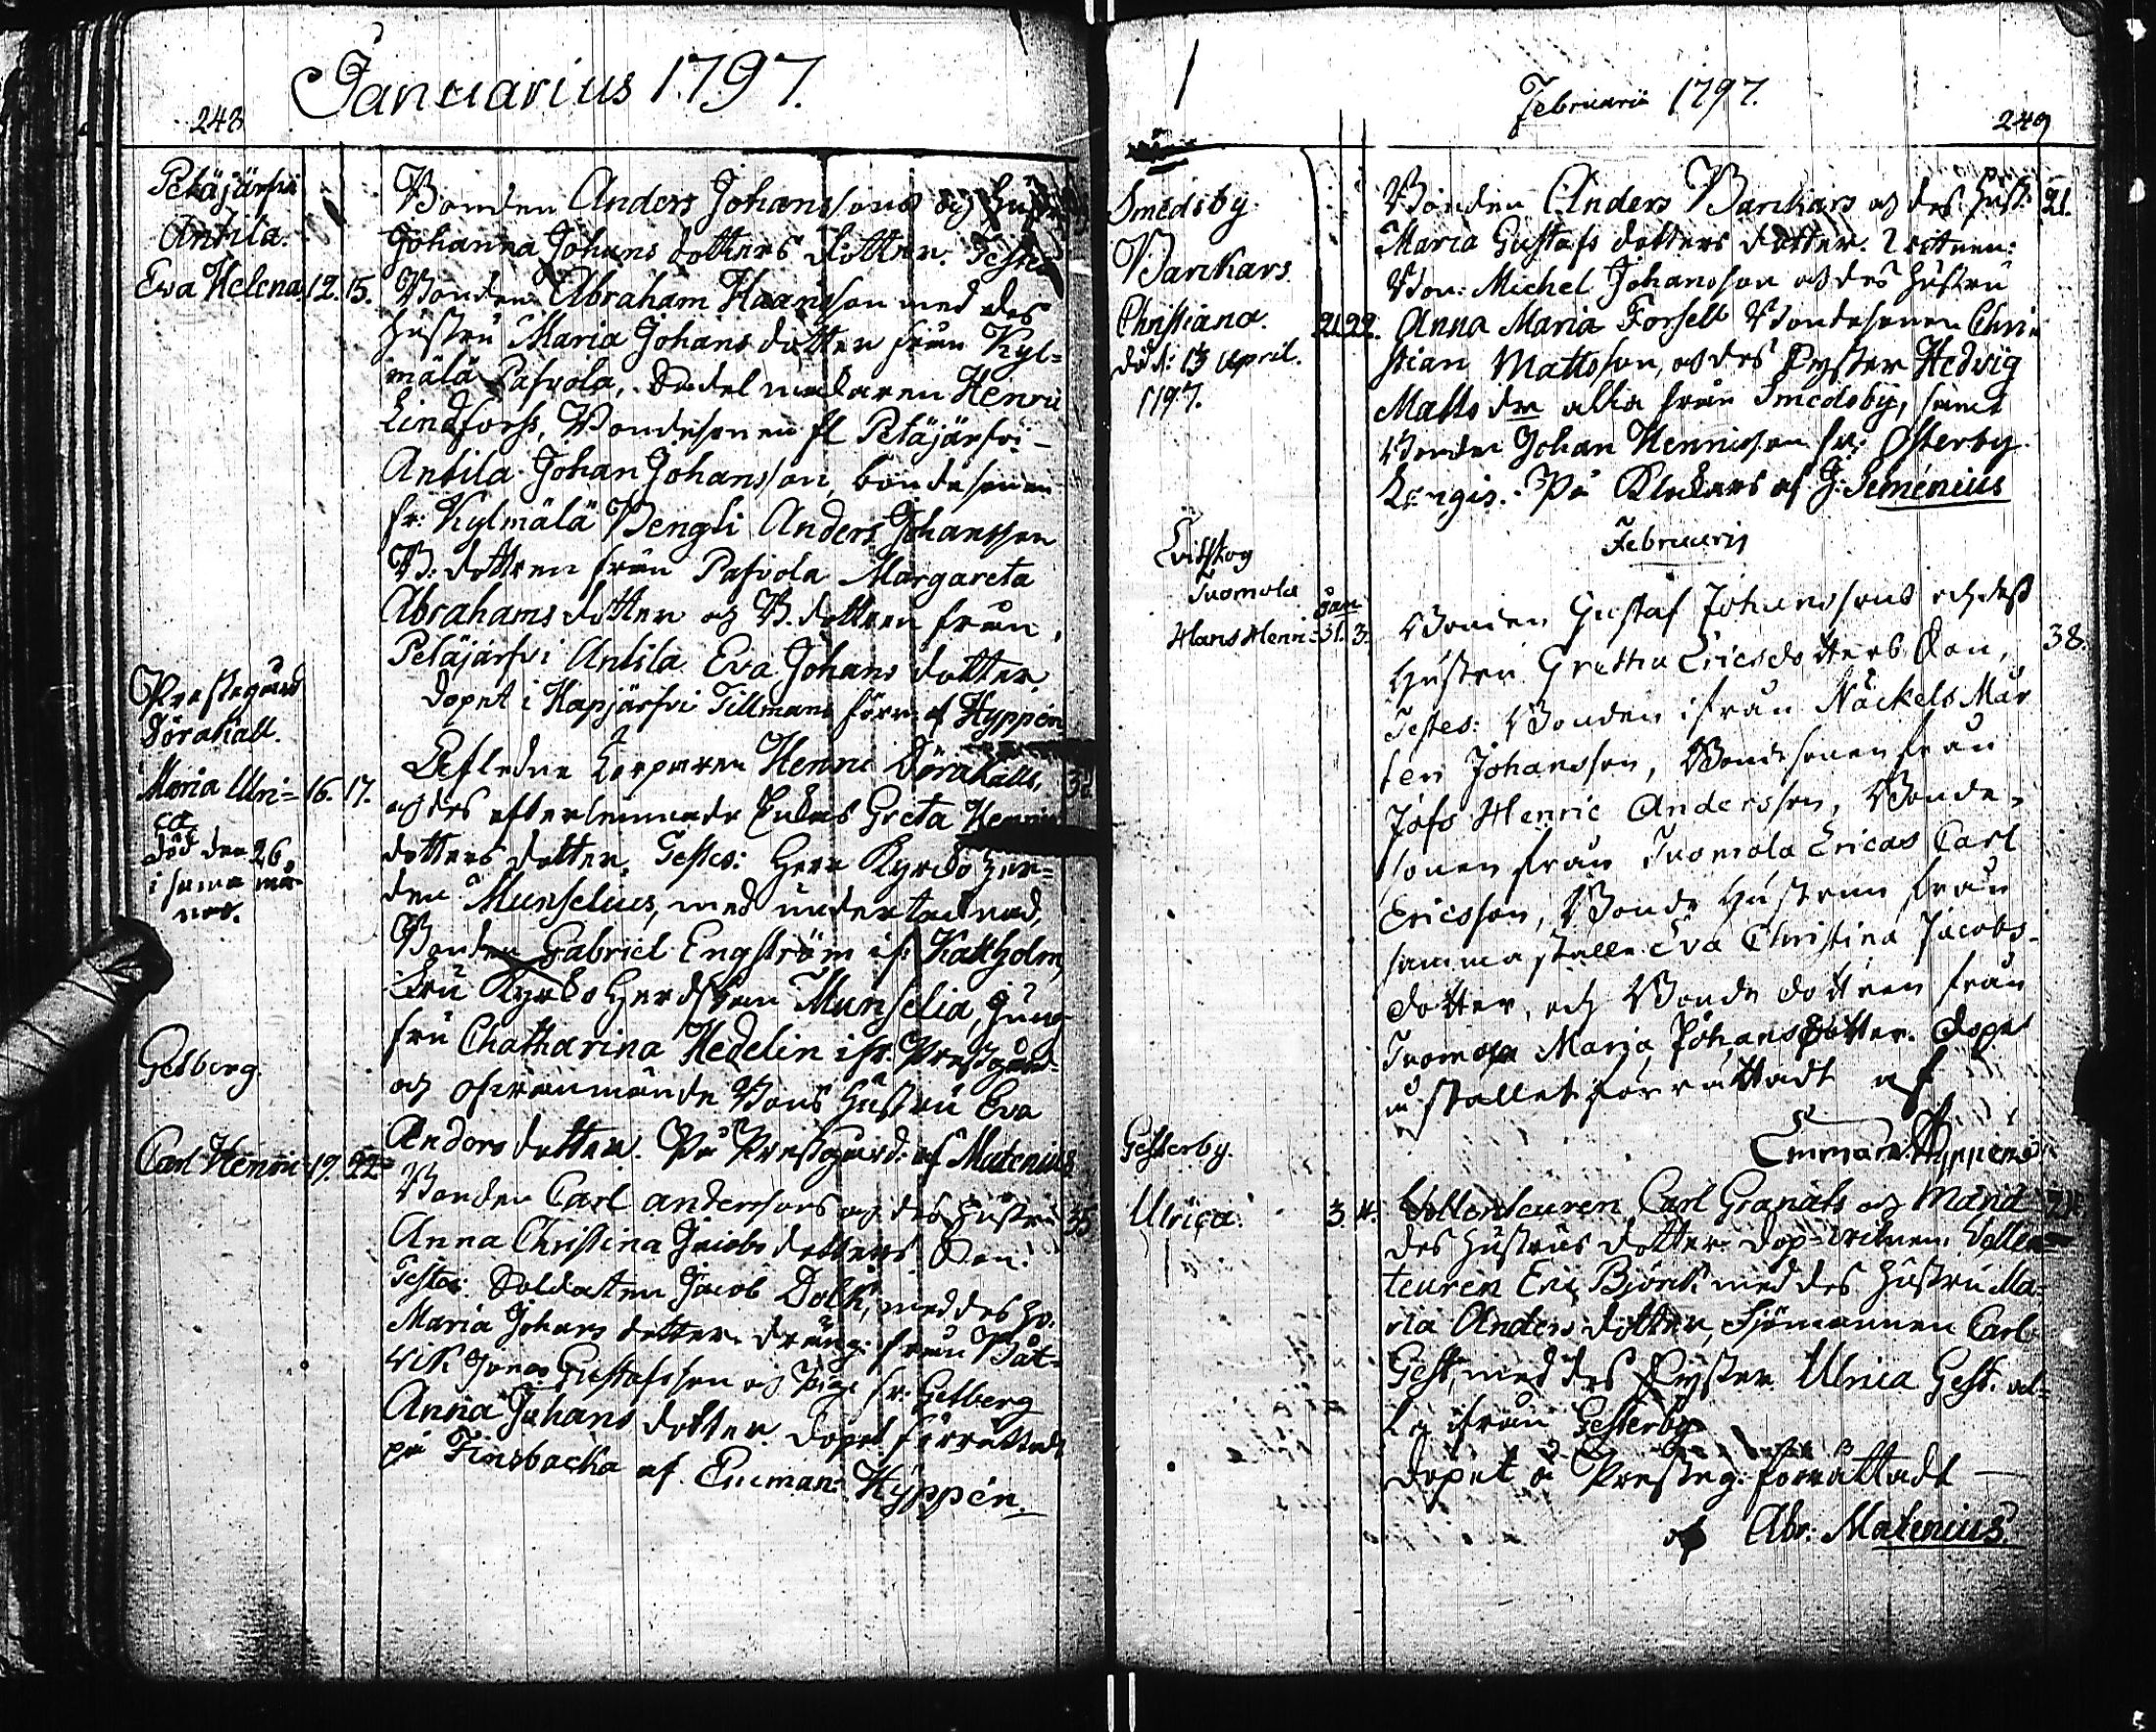 Januarius 1797.
248
Petäjärfvi
Antila.
Eva Helena 12. 15.
Bonden Anders Johanssons och Hustr
Johanna Johans dotters dotter. Testes
Bonden Abraham Hansson med des
Hustru Maria Johans dotter från Kyl=
mälä Pafvola, Sadelmakaren Henric
Lindforss, Bondesonen fr Petäjärfvi-
Antila Johan Johansson, bondesonen
fr: Kylmälä Bengti Anders Johansson
B: dottren från Pafvola Margareta
Abrahams dotter och B. dottren från
Petäjärfvi Antila Eva Johans dotter
dopet i Hapjärfvi Tillmans förr: af Hyppén
Prestegård
Dörakall.
Maria Ulri= 16. 17.
ca
död den 26.
i sama må-
nad.
Afledne Korparen Henric Dörakalls,
och des efterlemnade Enkas Greta Henrics
dotters dotter. Testes: Herr Kyrko Her=
den Munselius, med undertecknad,
Bonden Gabriel Engström if: Kattholm,
Fru Kyrko Herdskan Munselia, Jung
fru Chatharina Hedelin ifr. Prestgård
och ofvannämnde Bons Hustru Eva
Anders dotter. På Prestgård: af Matenius
Getberg.
Carl Henric 19. 22 35
Bonden Carl anderssons och des Hustru
Anna Christina Jacobs dotters Son.
Testes: Soldaten Jacob Dolk, med des H.
Maria Johans dotter. dräng: från Båt-
vik Jonas Gustafsson och Pige fr: Getberg
Anna Johans dotter. dopet förrättadt
på Finsbacka af Eman: Hyppén.
1
Februarii 1797.
249
Smedsby
Bankars
Christiana. 21 22.
död: 13 April.
1797.
Bonden Anders Bankars och des Hust: 21.
Maria Gustafs dotters dotter. Vittnen:
Bon: Michel Johansson och des Hustru
Anna Maria Forsell Bondesonen Chri=
stian Mattsson, och des Syster Hedvig
Matts dr alla från Smedsby, samt
Bonden Johan Henricsson fr: Österby
Kengis. På Klockars af J: Simenius
Februarii
Evitskog
Tuomola
Hans Henric Jan 31. 3. 38.
Bonden Gustaf Johanssons och dess
Hustru Gretha Ericsdotters Son,
Testes: Bonden ifrån Näckels Mår
ten Johansson, Bondesonen från
Jofs Henric Andersson, Bonde-
sonen från Tuomola Ericas Carl
Ericsson, Bonde Hustrun från
samma ställe Eva Christina Jacobs-
dotter, och Bonde dottren från
Tuomola Maria Johansdotter. Dopet
å stället förrättadt af
Emman. Hyppén
Gesterby.
Ulrica. 3. 4.
Volenteuren Carl Granats och
des Hustrus dotter. Dop-vitnen: Vollen=
teuren Eric Björck med des Hustru Ma=
ria Anders dotter, Sjömannen Carl
Gest, med des Syster Ulrica Gest. al=
la ifrån Gesterby
Dopet å Presteg: förrättadt
af Abr: Matenius.